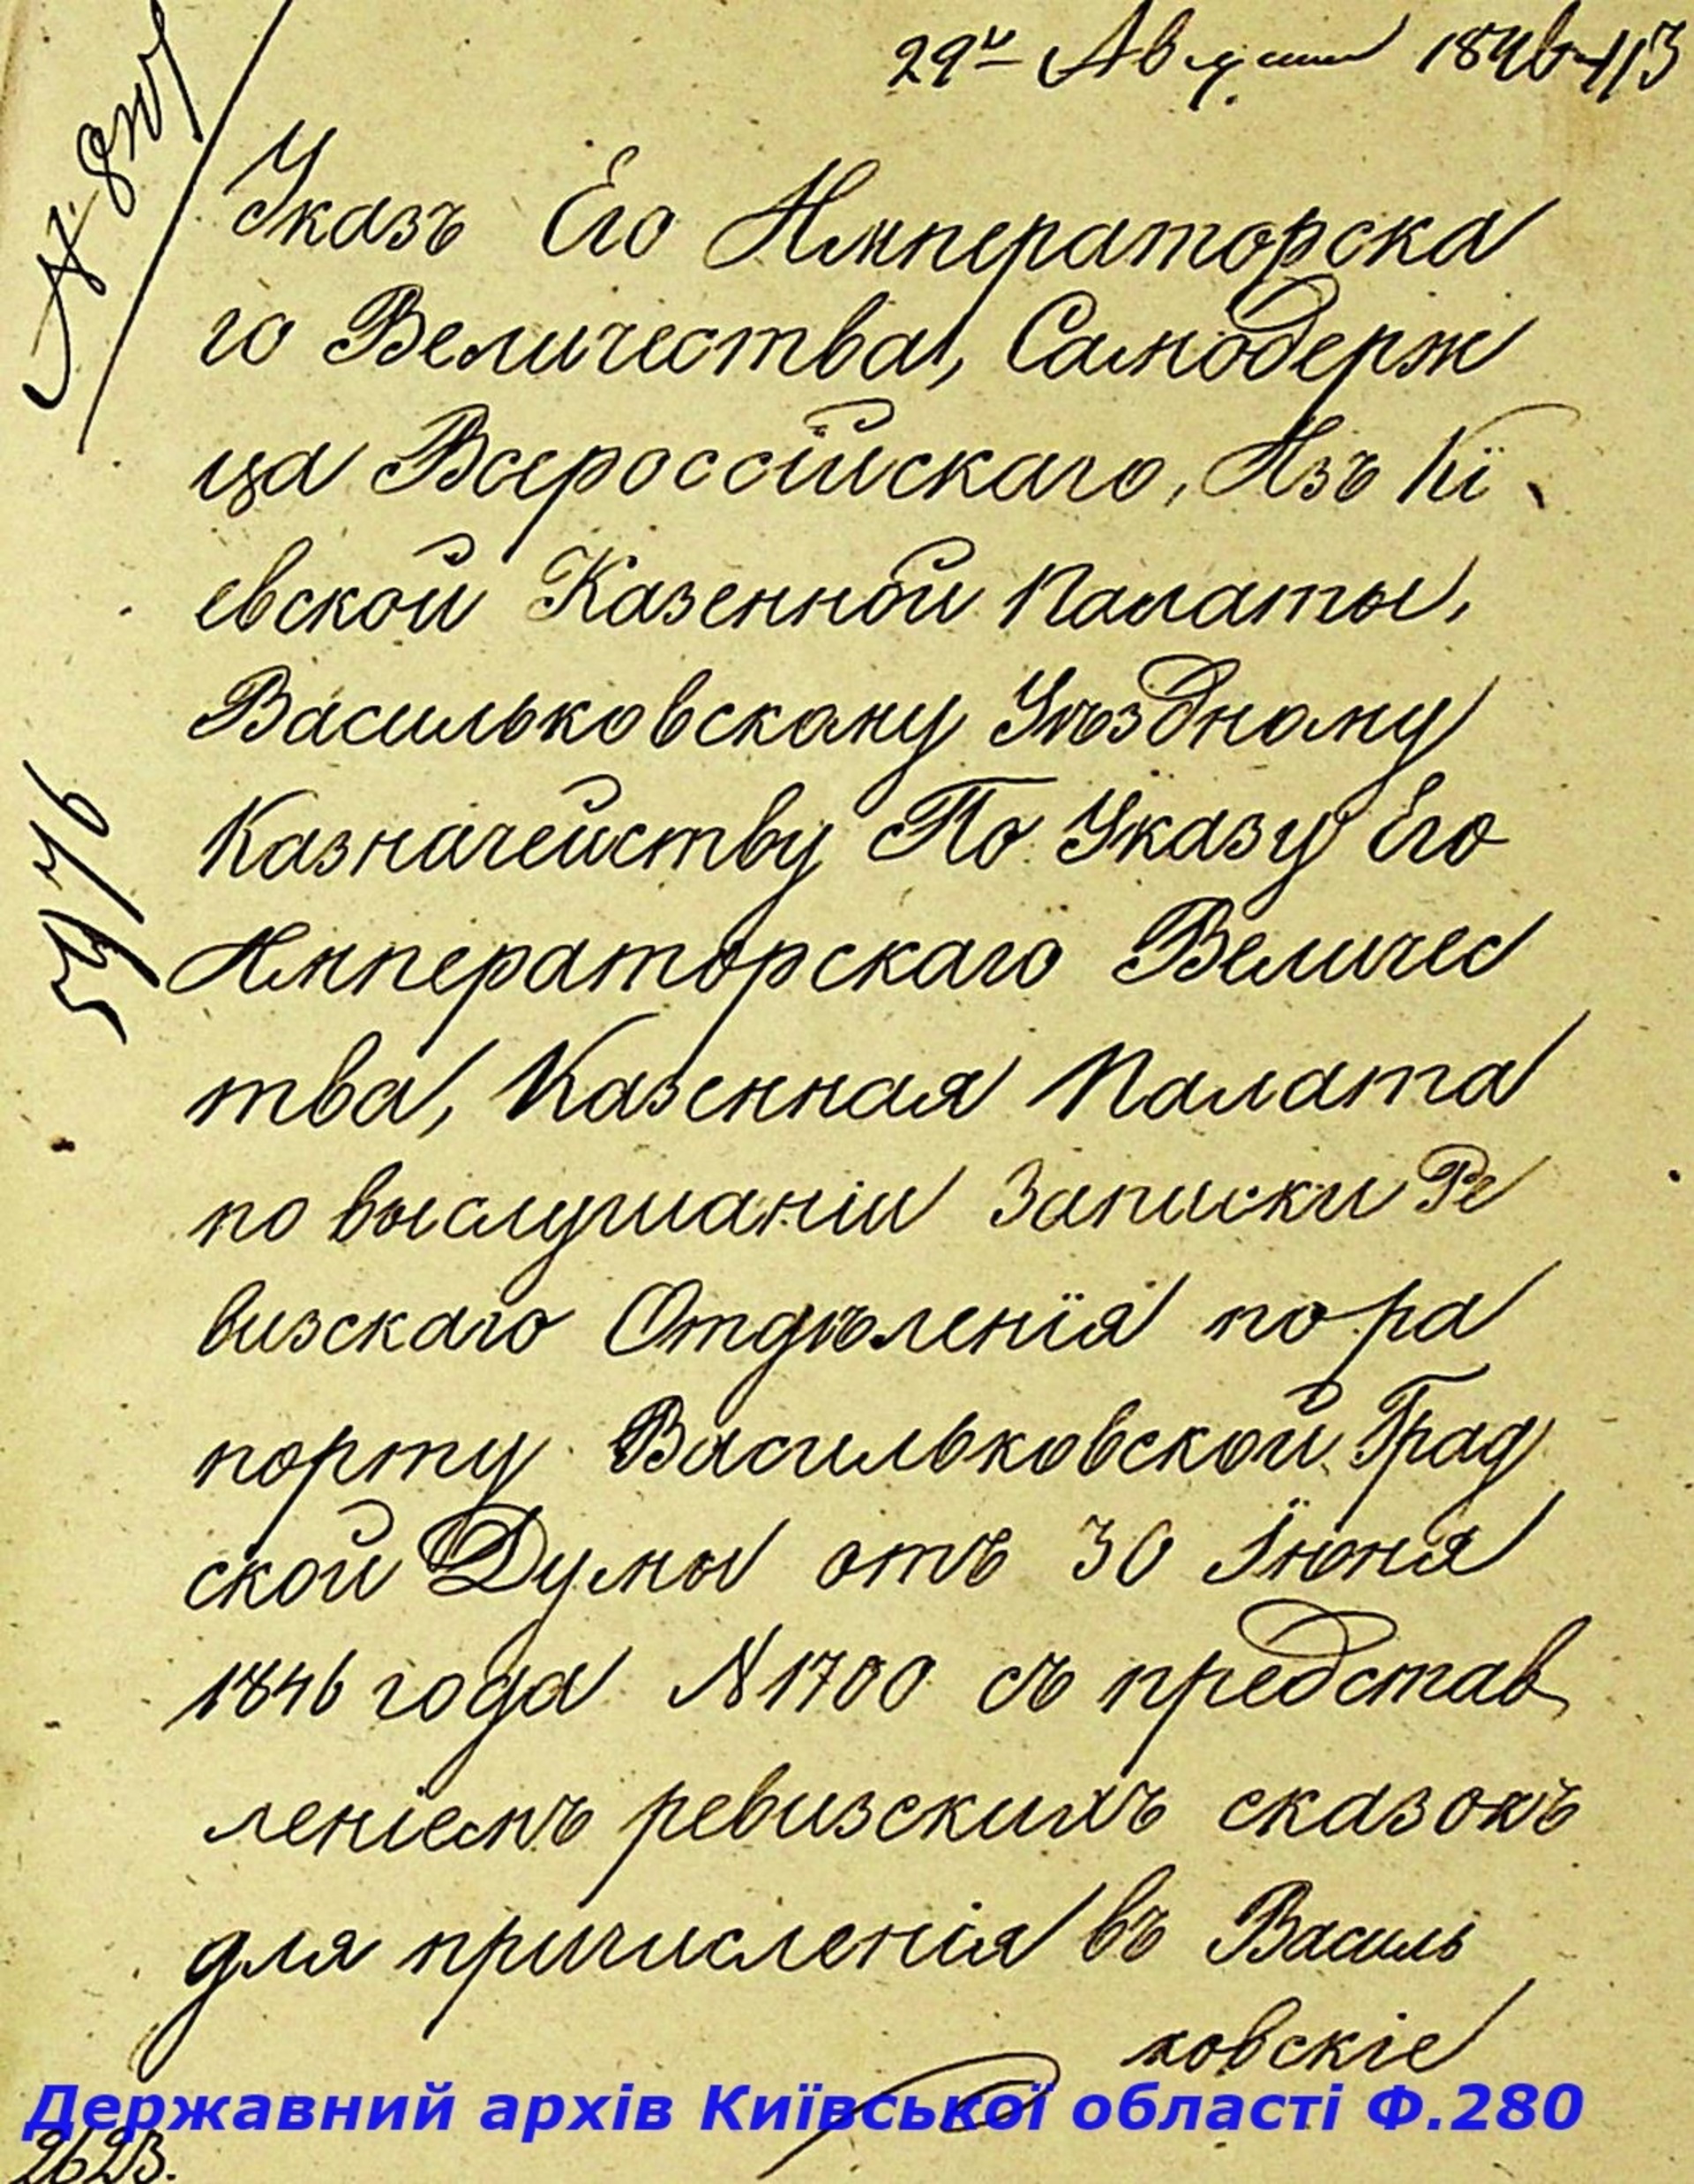 29го Августа 1846 113
Указъ Его Императорска
го Величества, Самодерж
ца Всероссійскаго, Изъ Кї
евской Казенной Палаты,
Васильковскому Уѣздному
Казначейству По Указу Его
Императорскаго Величес
тва, Казенная Палата
по выслушаніи Записки Ре
визскаго Отдѣленія по ра
порту Васильковской Град
ской Думы отъ 30 Іюня
1846 года № 1700 съ представ
леніемъ ревизскихъ сказокъ
для причисленія въ Василь
ковскіе
Державний архів Київської області Ф.280